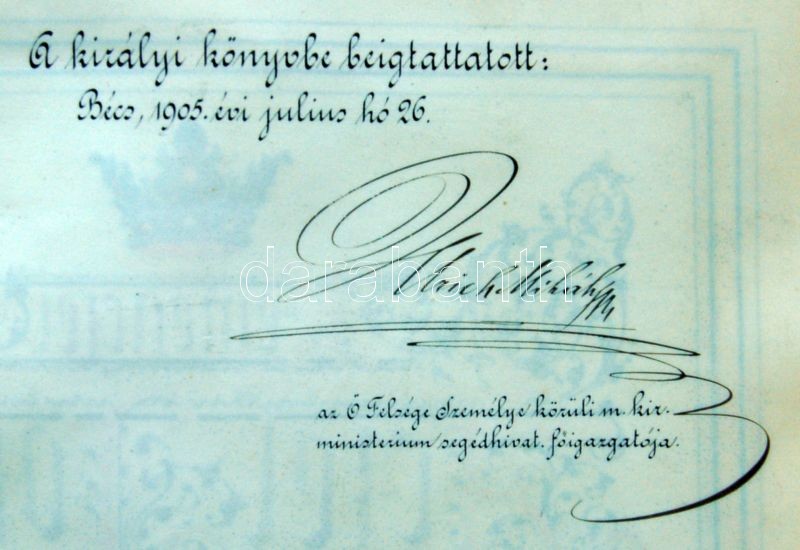 A királyi könyvbe beigtattatott:
Bécs, 1905. évi julius hó 26.
darabanth
Mihály
az Ő Felsége Személye körüli m. kir.
ministerium segédhivat. főigazgatója.